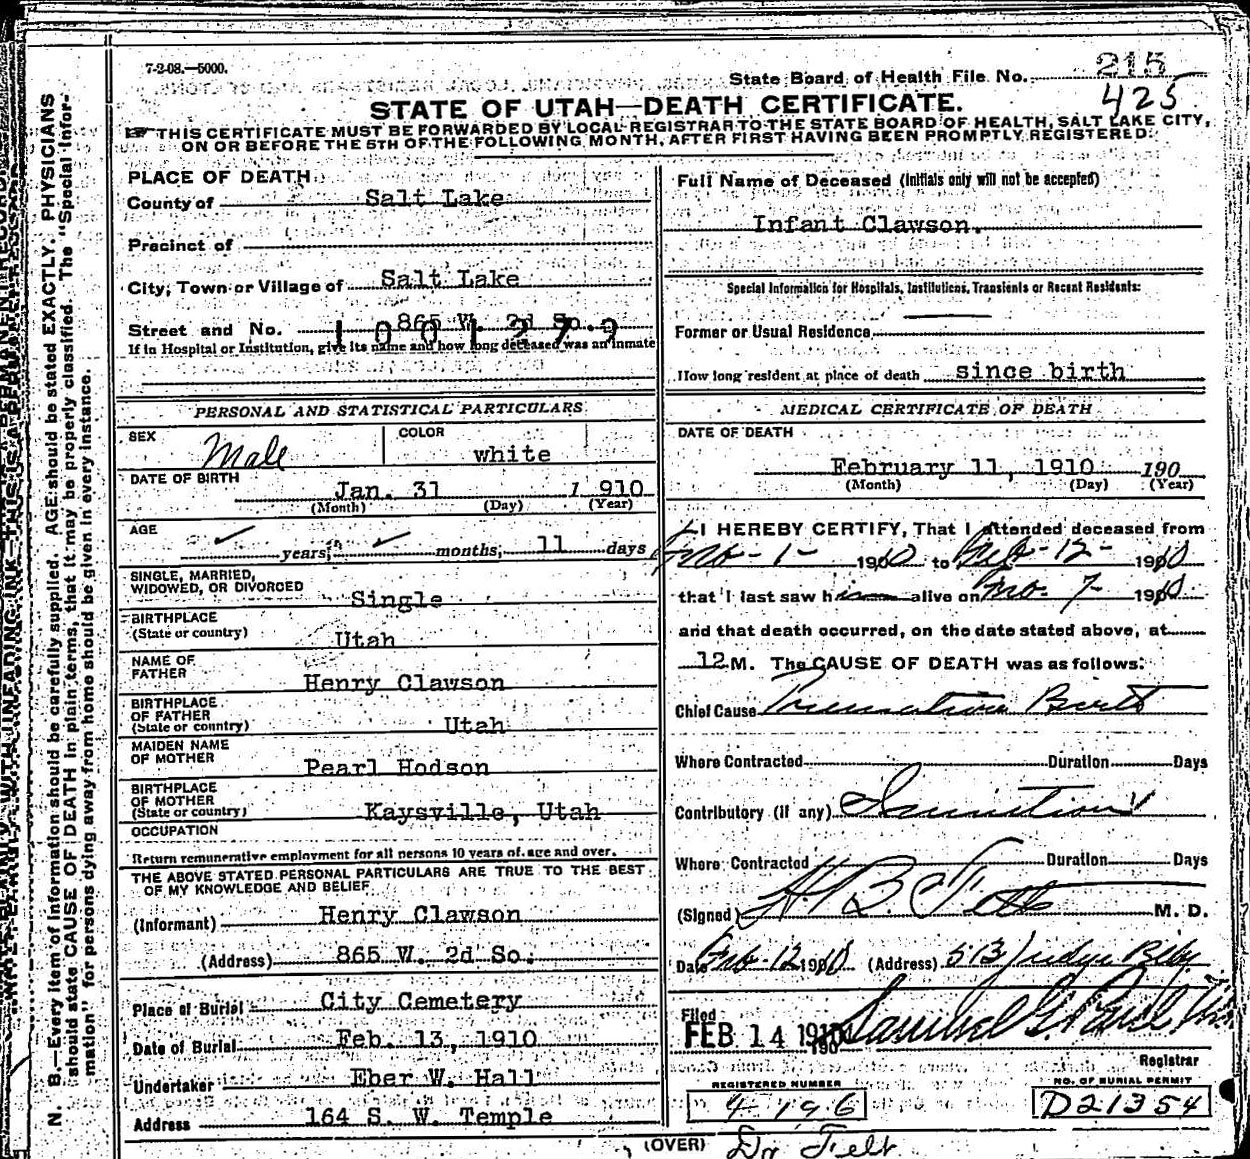 7-2-08.—5000.
State Board of Health File No. 215
425
STATE OF UTAH—DEATH CERTIFICATE.
THIS CERTIFICATE MUST BE FORWARDED BY LOCAL REGISTRAR TO THE STATE BOARD OF HEALTH, SALT LAKE CITY,
ON OR BEFORE THE 5TH OF THE FOLLOWING MONTH, AFTER FIRST HAVING BEEN PROMPTLY REGISTERED.
PLACE OF DEATH
County of Salt Lake
Precinct of
City, Town or Village of Salt Lake
Street and No. 865 W. 2d So.
1001279
If in Hospital or Institution, give its name and how long deceased was an inmate
PERSONAL AND STATISTICAL PARTICULARS
SEX Male COLOR white
DATE OF BIRTH
Jan. 31 1 910
(Month) (Day) (Year)
AGE
years, months, 11 days
SINGLE, MARRIED,
WIDOWED, OR DIVORCED Single
BIRTHPLACE
(State or country) Utah
NAME OF
FATHER Henry Clawson
BIRTHPLACE
OF FATHER
(State or country) Utah
MAIDEN NAME
OF MOTHER Pearl Hodson
BIRTHPLACE
OF MOTHER
(State or country) Kaysville, Utah
OCCUPATION
Return remunerative employment for all persons 10 years of age and over.
THE ABOVE STATED PERSONAL PARTICULARS ARE TRUE TO THE BEST
OF MY KNOWLEDGE AND BELIEF
(Informant) Henry Clawson
(Address) 865 W. 2d So.
Place of Burial City Cemetery
Date of Burial Feb. 13, 1910
Undertaker Eber W. Hall
Address 164 S. W. Temple
Full Name of Deceased (Initials only will not be accepted)
Infant Clawson.
Special Information for Hospitals, Institutions, Transients or Recent Residents:
Former or Usual Residence
How long resident at place of death since birth
MEDICAL CERTIFICATE OF DEATH
DATE OF DEATH
February 11, 1910 190
(Month) (Day) (Year)
I HEREBY CERTIFY, That I attended deceased from
Feb-1- 1910 to Feb-12- 1910
that I last saw him alive on Feb. 7- 1910
and that death occurred, on the date stated above, at
12 M. The CAUSE OF DEATH was as follows:
Chief Cause Premature Birth
Where Contracted Duration Days
Contributory (if any) Inanition
Where Contracted Duration Days
(Signed) M. D.
Date Feb-12 1910 (Address) 513 Judge Bldg
Filed
FEB 14 1910
190
Registrar
REGISTERED NUMBER
4196
NO. OF BURIAL PERMIT
D21354
(OVER) Dr Felt
N. B.—Every item of information should be carefully supplied. AGE should be stated EXACTLY. PHYSICIANS
should state CAUSE OF DEATH in plain terms, that it may be properly classified. The "Special Infor-
mation" for persons dying away from home should be given in every instance.